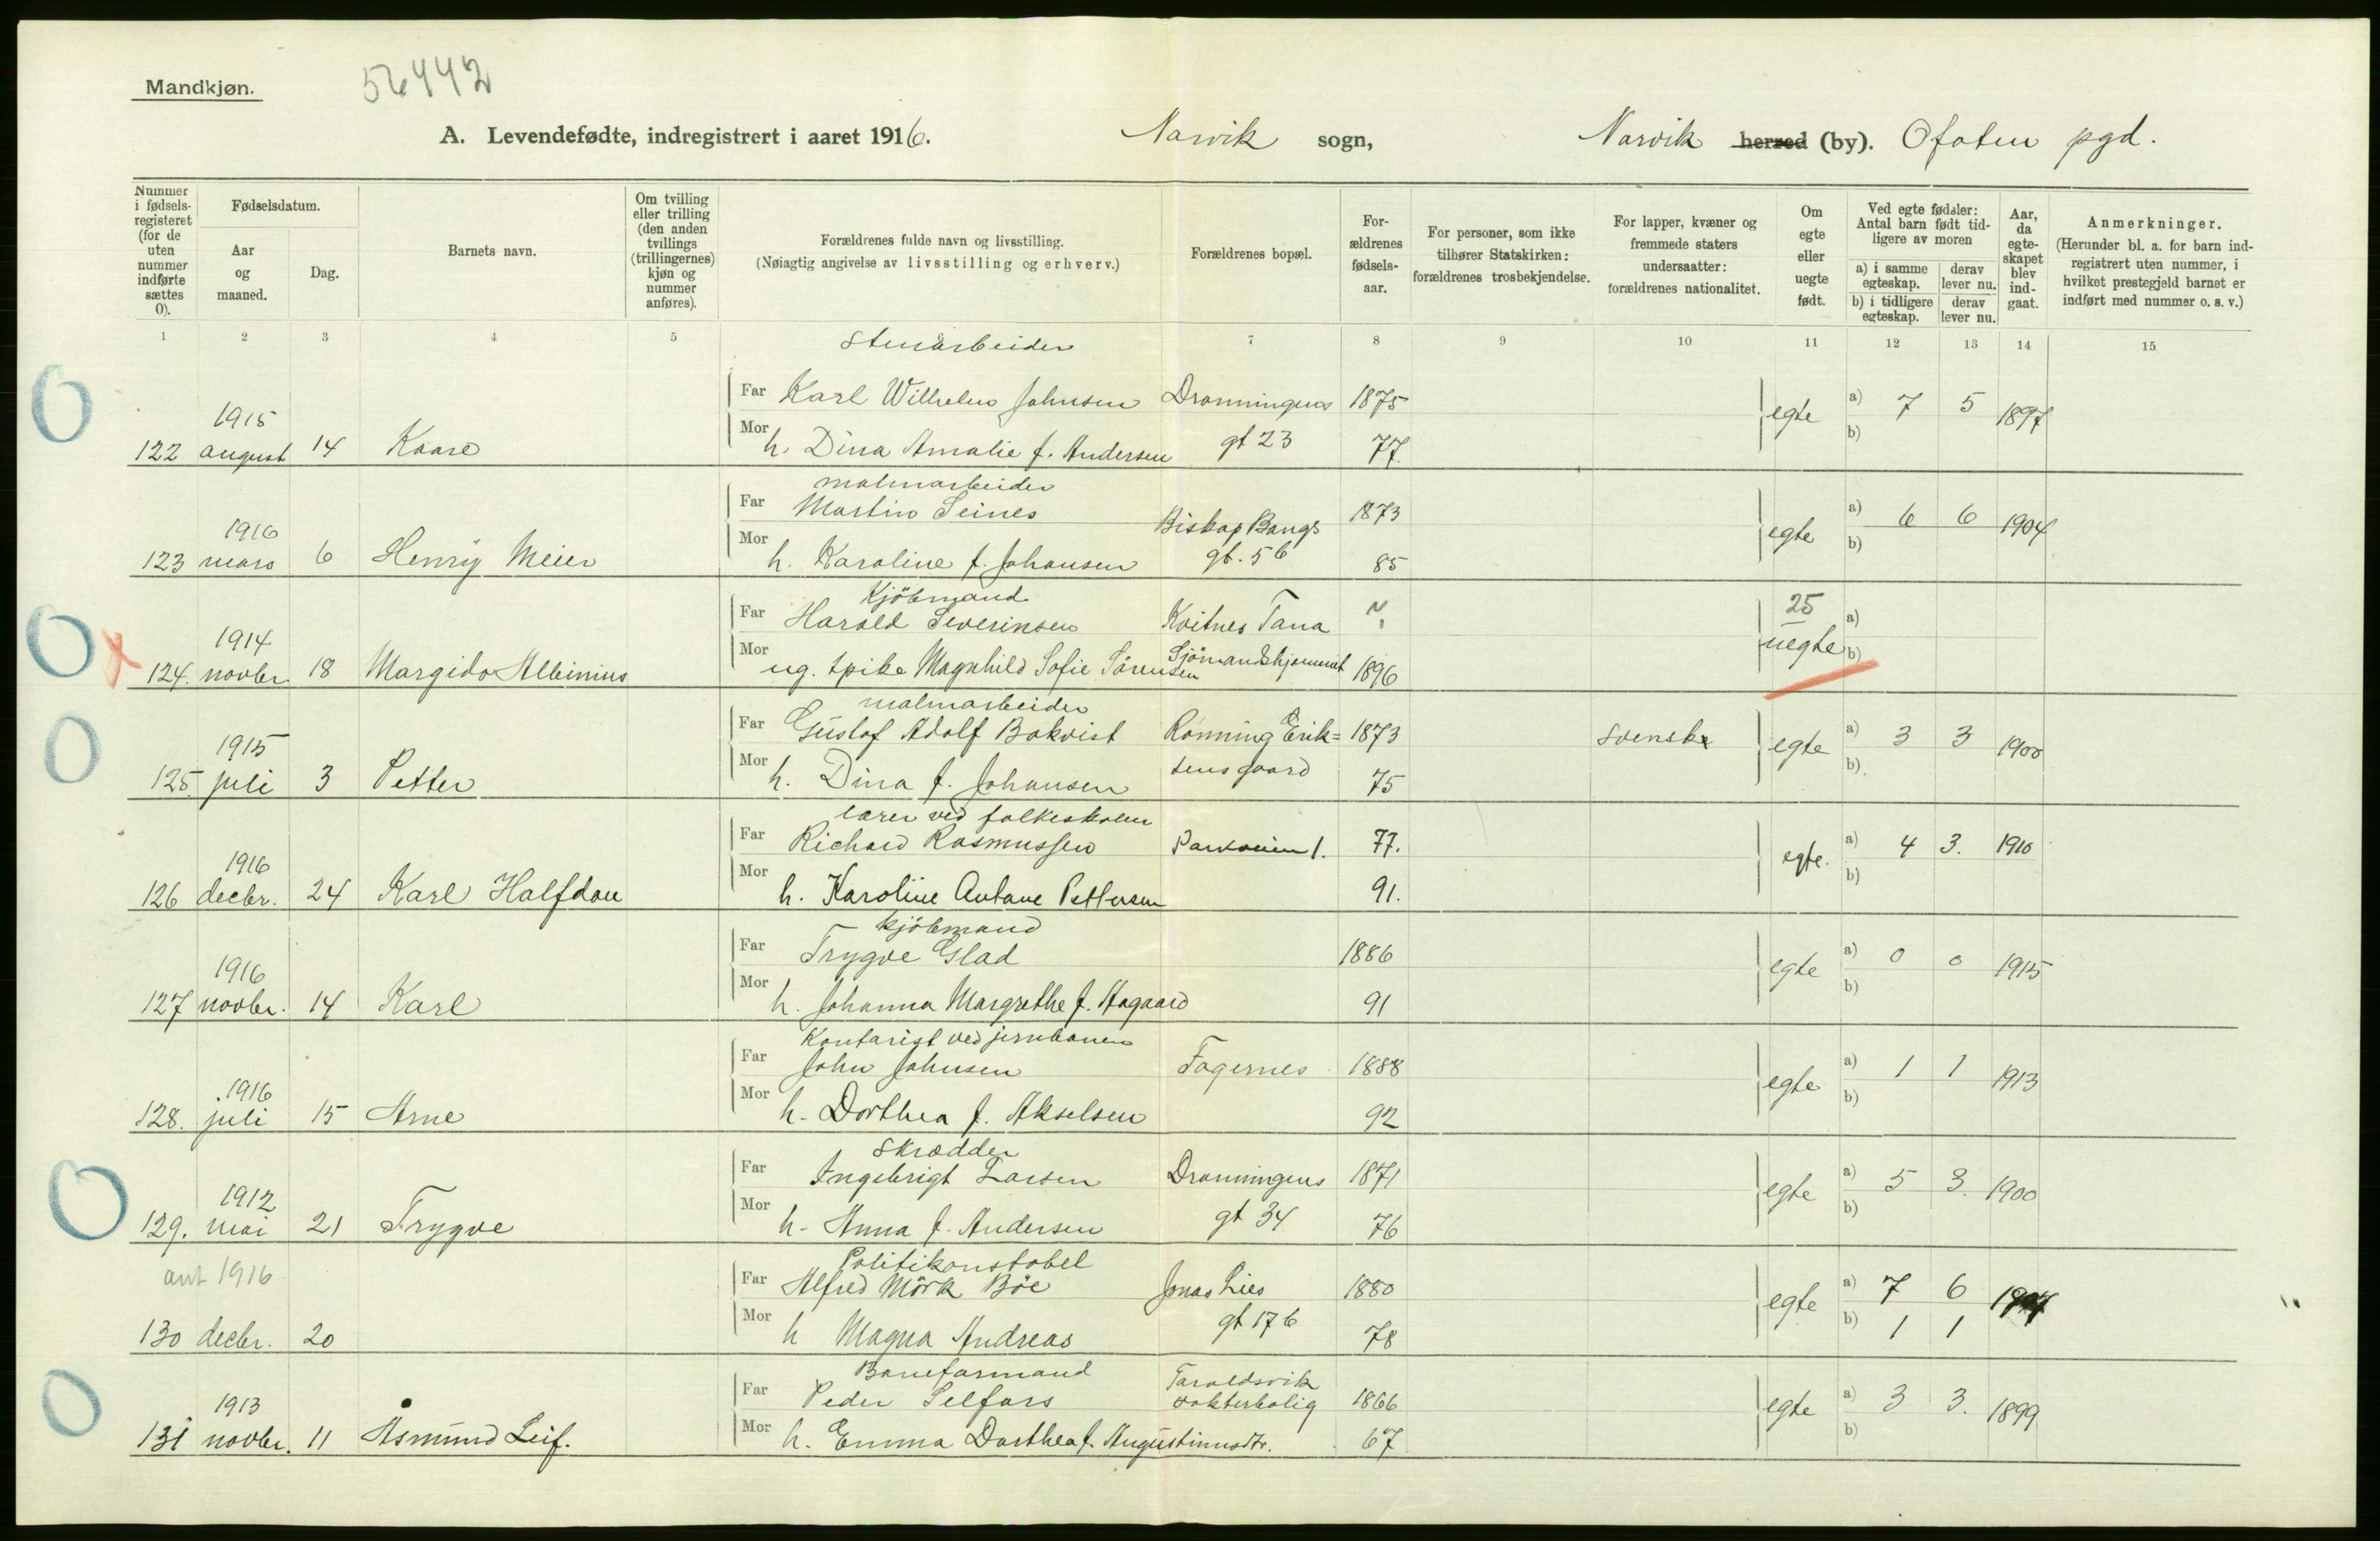 Mandkjøn.
56442
A. Levendefødte, indregistrert i aaret 1916. Narvik sogn, Narvik herred (by). Ofoten pgd.
Nummer i fødsels-registeret (for de uten nummer indførte sættes 0).
Fødselsdatum.
Aar og maaned.
Dag.
Barnets navn.
Om tvilling eller trilling (den anden tvillings (trillingernes) kjøn og nummer anføres).
Forældrenes fulde navn og livsstilling.
(Nøiagtig angivelse av livsstilling og erhverv.)
Forældrenes bopæl.
For-ældrenes fødsels-aar.
For personer, som ikke tilhører Statskirken: forældrenes trosbekjendelse.
For lapper, kvæner og fremmede staters undersaatter: forældrenes nationalitet.
Om egte eller uegte født.
Ved egte fødsler: Antal barn født tid-ligere av moren
a) i samme egteskap. derav lever nu.
b) i tidligere egteskap. derav lever nu.
Aar, da egte-skapet blev ind-gaat.
Anmerkninger.
(Herunder bl. a. for barn ind-registrert uten nummer, i hvilket prestegjeld barnet er indført med nummer o. s. v.)
1 2 3 4 5 7 8 9 10 11 12 13 14 15
Stenarbeider
Far Karl Wilhelm Johnsen Dronningens 1875
1915 egte a) 7 5 1897
122 august 14 Kaare Mor h. Dina Amalie f. Andersen gt 23 77. b)
malmarbeider
Far Martin Seines Biskop Bangs 1873
1916 egte a) 6 6 1904
123 mars 6 Henry Meier Mor h. Karoline f. Johansen gt. 56 85 b)
Kjöbmand
Far Harold Severinsen Kvitnes Tana 25
1914 uegte a)
124. novbr. 18 Margido Albinius Mor ug. spike Magnhild Sofie Sörensen Sjömandshjemmet 1896 b)
malmarbeider
Far Gustaf Adolf Bokvist Rönning Erik= 1873 svenske
1915 egte a) 3 3 1900
125. juli 3 Petter Mor h. Dina f. Johansen sens gaard 75 b)
lærer ved folkeskolen
Far Richard Rasmussen Parkveien 1. 77.
1916 egte. a) 4 3. 1910
126 decbr. 24 Karl Halfdan Mor h. Karoline Antane Pettersen 91. b)
kjöbmand
Far Trygve Glad 1886
1916 egte a) 0 0 1915
127 novbr. 14 Karl Mor h. Johanna Margrethe f. Aagaard 91 b)
Kontorist ved jernbanen
Far John Johnsen Fagernes 1888
1916 egte a) 1 1 1913
128. juli 15 Arne Mor h. Dorthea f. Akselsen 92 b)
Skrædder
Far Ingebrigt Larsen Dronningens 1871
1912 egte a) 5 3. 1900
129. mai 21 Trygve Mor h. Anna f. Andersen gt 34 76 b)
Politikonstabel
ant 1916 Far Alfred Mörk Böe Jonas Lies 1880
egte a) 7 6
130 decbr. 20 Mor h Magna Andreas gt 17 b 78 b) 1 1
Baneformand
Far Peder Selfors Taraldsvik vokterbolig 1866
1913 egte a) 3 3. 1899
131 novbr. 11 Åsmund Leif. Mor h. Emma Dorthea f. Augustinusdtr. 67 b)